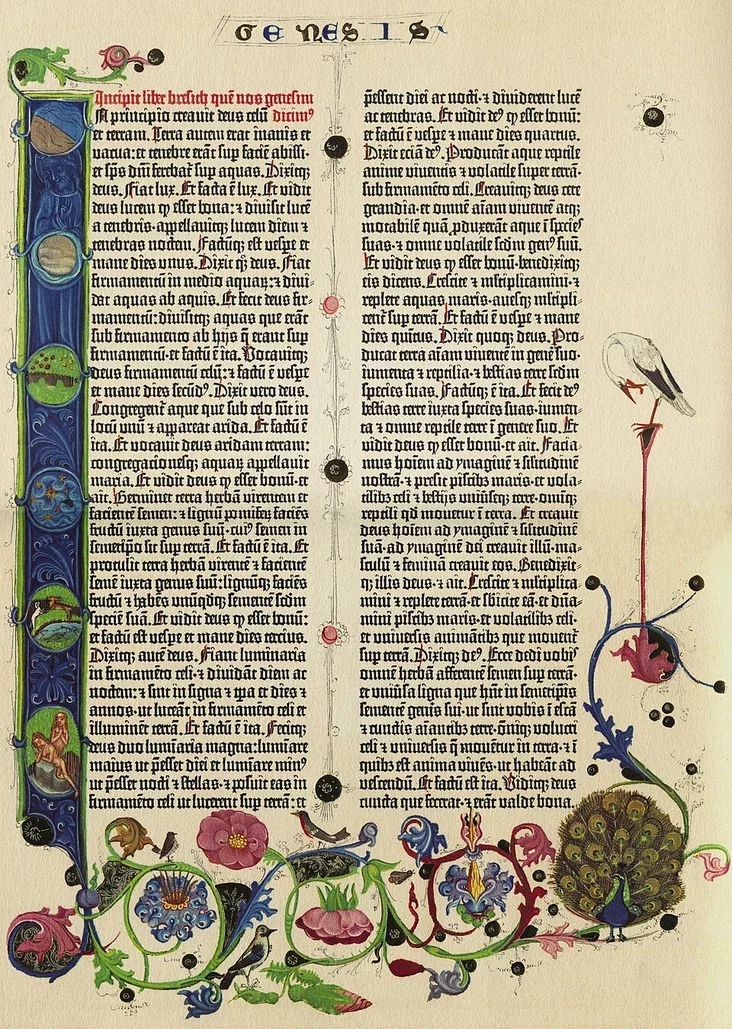 GENESIS
Incipit liber bresith quē nos genesim
In principio creavit deus celū dicim⁹
et terram. Terra autem erat inanis et
vacua: et tenebre erāt sup faciē abissi:
et sp̄s dn̄i ferebat̄ sup aquas. Dixitq;
deus. Fiat lux. Et facta ē lux. Et vidit
deus lucem ꝙ esset bona: ⁊ divisit lucē
a tenebris· appellavitq; lucem diem ⁊
tenebras noctem. Factūq; est vespe et
mane dies unus. Dixit qꝫ deus. Fiat
firmamentū in medio aquaꝝ: ⁊ divi-
dat aquas ab aquis. Et fecit deus fir-
mamentū: divisitq; aquas que erāt
sub firmamento ab hijs q̄ erant sup
firmamentū: et factū ē ita. Vocavitq;
deus firmamentū celū: ⁊ factū ē vespe
et mane dies secūd⁹. Dixit vero deus.
Congregent̄ aque que sub celo sūt in
locū unū ⁊ appareat arida. Et factū ē
ita. Et vocavit deus aridam terram:
congregacionesq; aquaꝝ appellavit
maria. Et vidit deus ꝙ esset bonū· et
ait. Germinet terra herbā virentem et
facientē semen: ⁊ lignū pomifeꝝ faciēs
fructū iuxta genus suū· cui⁹ semen in
semetipo sit sup terrā. Et factū ē ita. Et
protulit terra herbā virentē ⁊ facientē
semē iuxta genus suū: lignūq; faciēs
fructū ⁊ habēs unūqdq; sementē scdm
speciē suā. Et vidit deus ꝙ esset bonū:
et factū est vespe et mane dies tercius.
Dixitq; autē deus. Fiant luminaria
in firmamēto celi· ⁊ dividāt diem ac
noctem: ⁊ sint in signa ⁊ tp̄a et dies ⁊
annos· ut luceāt in firmamēto celi et
illuminēt terrā. Et factū ē ita. Fecitq;
deus duo luminaria magna: lumiare
maius ut p̄esset diei et lumiare min⁹
ut p̄esset nocti ⁊ stellas· ⁊ posuit eas in
firmamēto celi ut lucerent sup terrā: et
p̄essent diei ac nocti· ⁊ dividerent lucē
ac tenebras. Et vidit de⁹ ꝙ esset bonū:
et factū ē vespe ⁊ mane dies quartus.
Dixit eciā de⁹. Producāt aque reptile
anime viventis ⁊ volatile super terrā·
sub firmamēto celi. Creavitq; deus cete
grandia· et omnē aīam viventē atq;
motabilē quā ꝓduxerāt aque ī species
suas· ⁊ omne volatile scdm gen⁹ suū.
Et vidit deus ꝙ esset bonū· benedixitq;
eis dicens. Crescite ⁊ mltiplicamini· ⁊
replete aquas maris· avesq; mltipli-
cent̄ sup terrā. Et factū ē vespe ⁊ mane
dies quītus. Dixit quoq; deus. Pro-
ducat terra aīam viventē in gene̅ suo·
iumenta ⁊ reptilia· ⁊ bestias terre scdm
species suas. Factūq; ē ita. Et fecit de⁹
bestias terre iuxta species suas· iumen-
ta ⁊ omne reptile terre ī genere suo. Et
vidit deus ꝙ esset bonū· et ait. Facia-
mus hoīem ad ymaginē ⁊ silitudinē
nostrā· ⁊ presit piscib⁹ maris· et vola-
tilib⁹ celi ⁊ bestijs univseq; terre· omīq;
reptili qd movet̄ ī terra. Et creavit
deus hoīem ad ymaginē ⁊ silitudinē
suā· ad ymaginē dei creavit illū· ma-
sculū ⁊ feminā creavit eos. Benedixit-
q; illis deus· ⁊ ait. Crescite ⁊ mltiplica-
mini ⁊ replete terrā· et sbicite eā· et dn̄a-
mini piscib⁹ maris· et volatilib⁹ celi·
et universis animātib⁹ que movent̄
sup terrā. Dixitq; de⁹. Ecce dedi vobis
omnē herbā afferentē semen sup terrā·
et univsa ligna que hn̄t in semetip̄is
sementē genis sui· ut sint vobis ī escā
⁊ cunctis aīantib⁹ terre· oīniq; volucri
celi ⁊ universis q̄ movēt̄ in terra· ⁊ ī
quib⁹ est anima vivēs· ut habeāt ad
vescendū. Et factū est ita. Viditq; deus
cuncta que fecerat· ⁊ erāt valde bona.